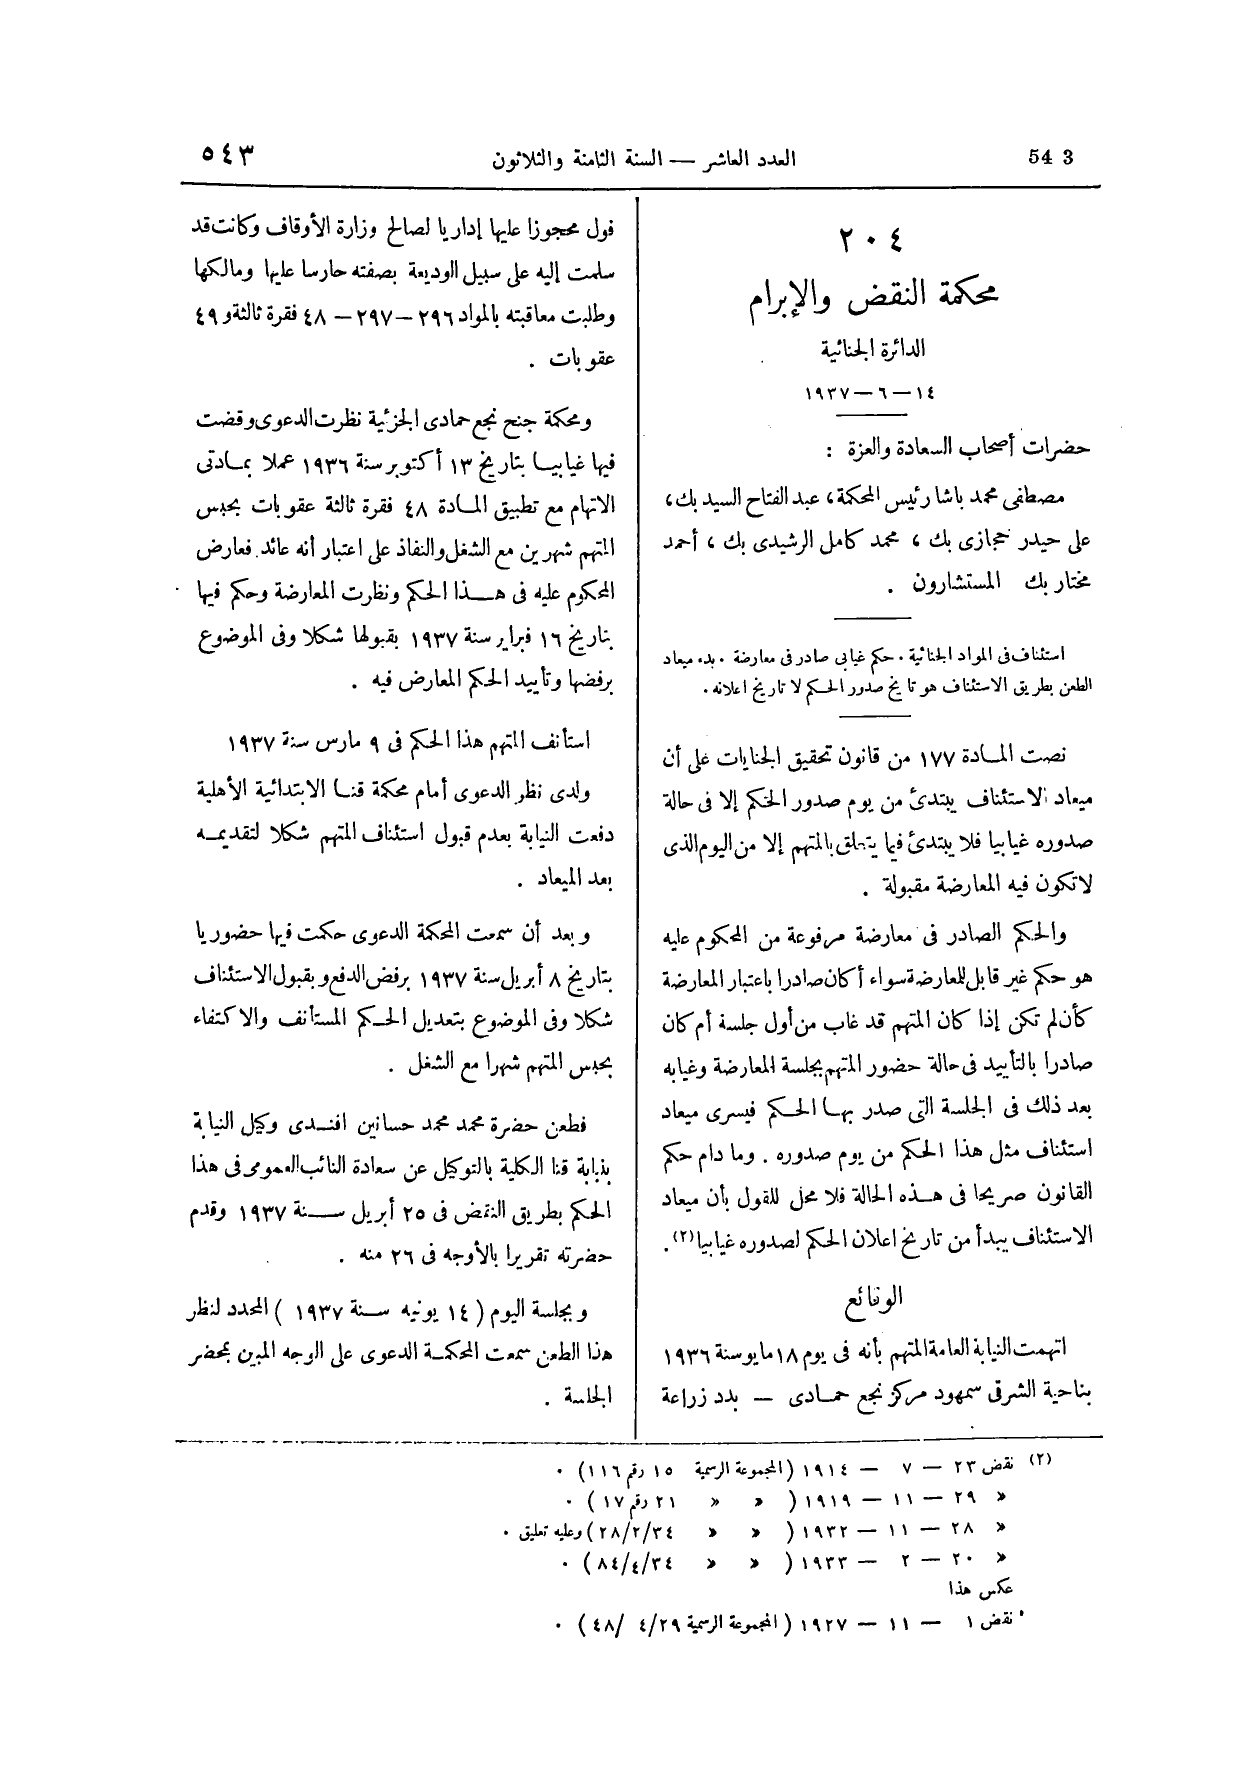 543 العدد العاشر — السنة الثامنة والثلاثون ٥٤٣
٢٠٤
محكمة النقض والإبرام
الدائرة الجنائية
١٤ — ٦ — ١٩٣٧
حضرات أصحاب السعادة والعزة :
مصطفى محمد باشا رئيس المحكمة، عبد الفتاح السيد بك،
على حيدر حجازى بك ، محمد كامل الرشيدى بك ، أحمد
مختار بك المستشارون .
استئناف فى المواد الجنائية . حكم غيابى صادر فى معارضة . بدء ميعاد
الطعن بطريق الاستئناف هو تاريخ صدور الحكم لا تاريخ اعلانه .
نصت المادة ١٧٧ من قانون تحقيق الجنايات على أن
ميعاد الاستئناف يبتدئ من يوم صدور الحكم إلا فى حالة
صدوره غيابيا فلا يبتدئ فيما يتعلق بالمتهم إلا من اليوم الذى
لا تكون فيه المعارضة مقبولة .
والحكم الصادر فى معارضة مرفوعة من المحكوم عليه
هو حكم غير قابل للمعارضة سواء أكان صادرا باعتبار المعارضة
كأن لم تكن إذا كان المتهم قد غاب من أول جلسة أم كان
صادرا بالتأييد فى حالة حضور المتهم بجلسة المعارضة وغيابه
بعد ذلك فى الجلسة التى صدر بها الحكم فيسرى ميعاد
استئناف مثل هذا الحكم من يوم صدوره . وما دام حكم
القانون صريحا فى هذه الحالة فلا محل للقول بأن ميعاد
الاستئناف يبدأ من تاريخ اعلان الحكم لصدوره غيابيا (٢) .
الوقائع
اتهمت النيابة العامة المتهم بأنه فى يوم ١٨ مايو سنة ١٩٣٦
بناحية الشرقى سمهود مركز نجع حمادى — بدد زراعة
فول محجوزا عليها إداريا لصالح وزارة الأوقاف وكانت قد
سلمت إليه على سبيل الوديعة بصفته حارسا عليها ومالكها
وطلبت معاقبته بالمواد ٢٩٦ — ٢٩٧ — ٤٨ فقرة ثالثة و ٤٩
عقوبات .
ومحكمة جنح نجع حمادى الجزئية نظرت الدعوى وقضت
فيها غيابيا بتاريخ ١٣ أكتوبر سنة ١٩٣٦ عملا بمادتى
الاتهام مع تطبيق المادة ٤٨ فقرة ثالثة عقوبات بحبس
المتهم شهرين مع الشغل والنفاذ على اعتبار أنه عائد. فعارض
المحكوم عليه فى هذا الحكم ونظرت المعارضة وحكم فيها
بتاريخ ١٦ فبراير سنة ١٩٣٧ بقبولها شكلا وفى الموضوع
برفضها وتأييد الحكم المعارض فيه .
استأنف المتهم هذا الحكم فى ٩ مارس سنة ١٩٣٧
ولدى نظر الدعوى أمام محكمة قنا الابتدائية الأهلية
دفعت النيابة بعدم قبول استئناف المتهم شكلا لتقديمه
بعد الميعاد .
وبعد أن سمعت المحكمة الدعوى حكمت فيها حضوريا
بتاريخ ٨ أبريل سنة ١٩٣٧ برفض الدفع وبقبول الاستئناف
شكلا وفى الموضوع بتعديل الحكم المستأنف والاكتفاء
بحبس المتهم شهرا مع الشغل .
فطعن حضرة محمد محمد حسانين افندى وكيل النيابة
بنيابة قنا الكلية بالتوكيل عن سعادة النائب العمومى فى هذا
الحكم بطريق النقض فى ٢٥ أبريل سنة ١٩٣٧ وقدم
حضرته تقريرا بالأوجه فى ٢٦ منه .
وبجلسة اليوم ( ١٤ يونيه سنة ١٩٣٧ ) المحدد لنظر
هذا الطعن سمعت المحكمة الدعوى على الوجه المبين بمحضر
الجلسة .
(٢) نقض ٢٣ — ٧ — ١٩١٤ (المجموعة الرسمية ١٥ رقم ١١٦) .
» ٢٩ — ١١ — ١٩١٩ ( » » ٢١ رقم ١٧ ) .
» ٢٨ — ١١ — ١٩٣٢ ( » » ٢٨/٢/٣٤) وعليه تعليق .
» ٢٠ — ٢ — ١٩٣٣ ( » » ٨٤/٤/٣٤) .
عكس هذا
نقض ١ — ١١ — ١٩٢٧ (المجموعة الرسمية ٤/٢٩ /٤٨) .